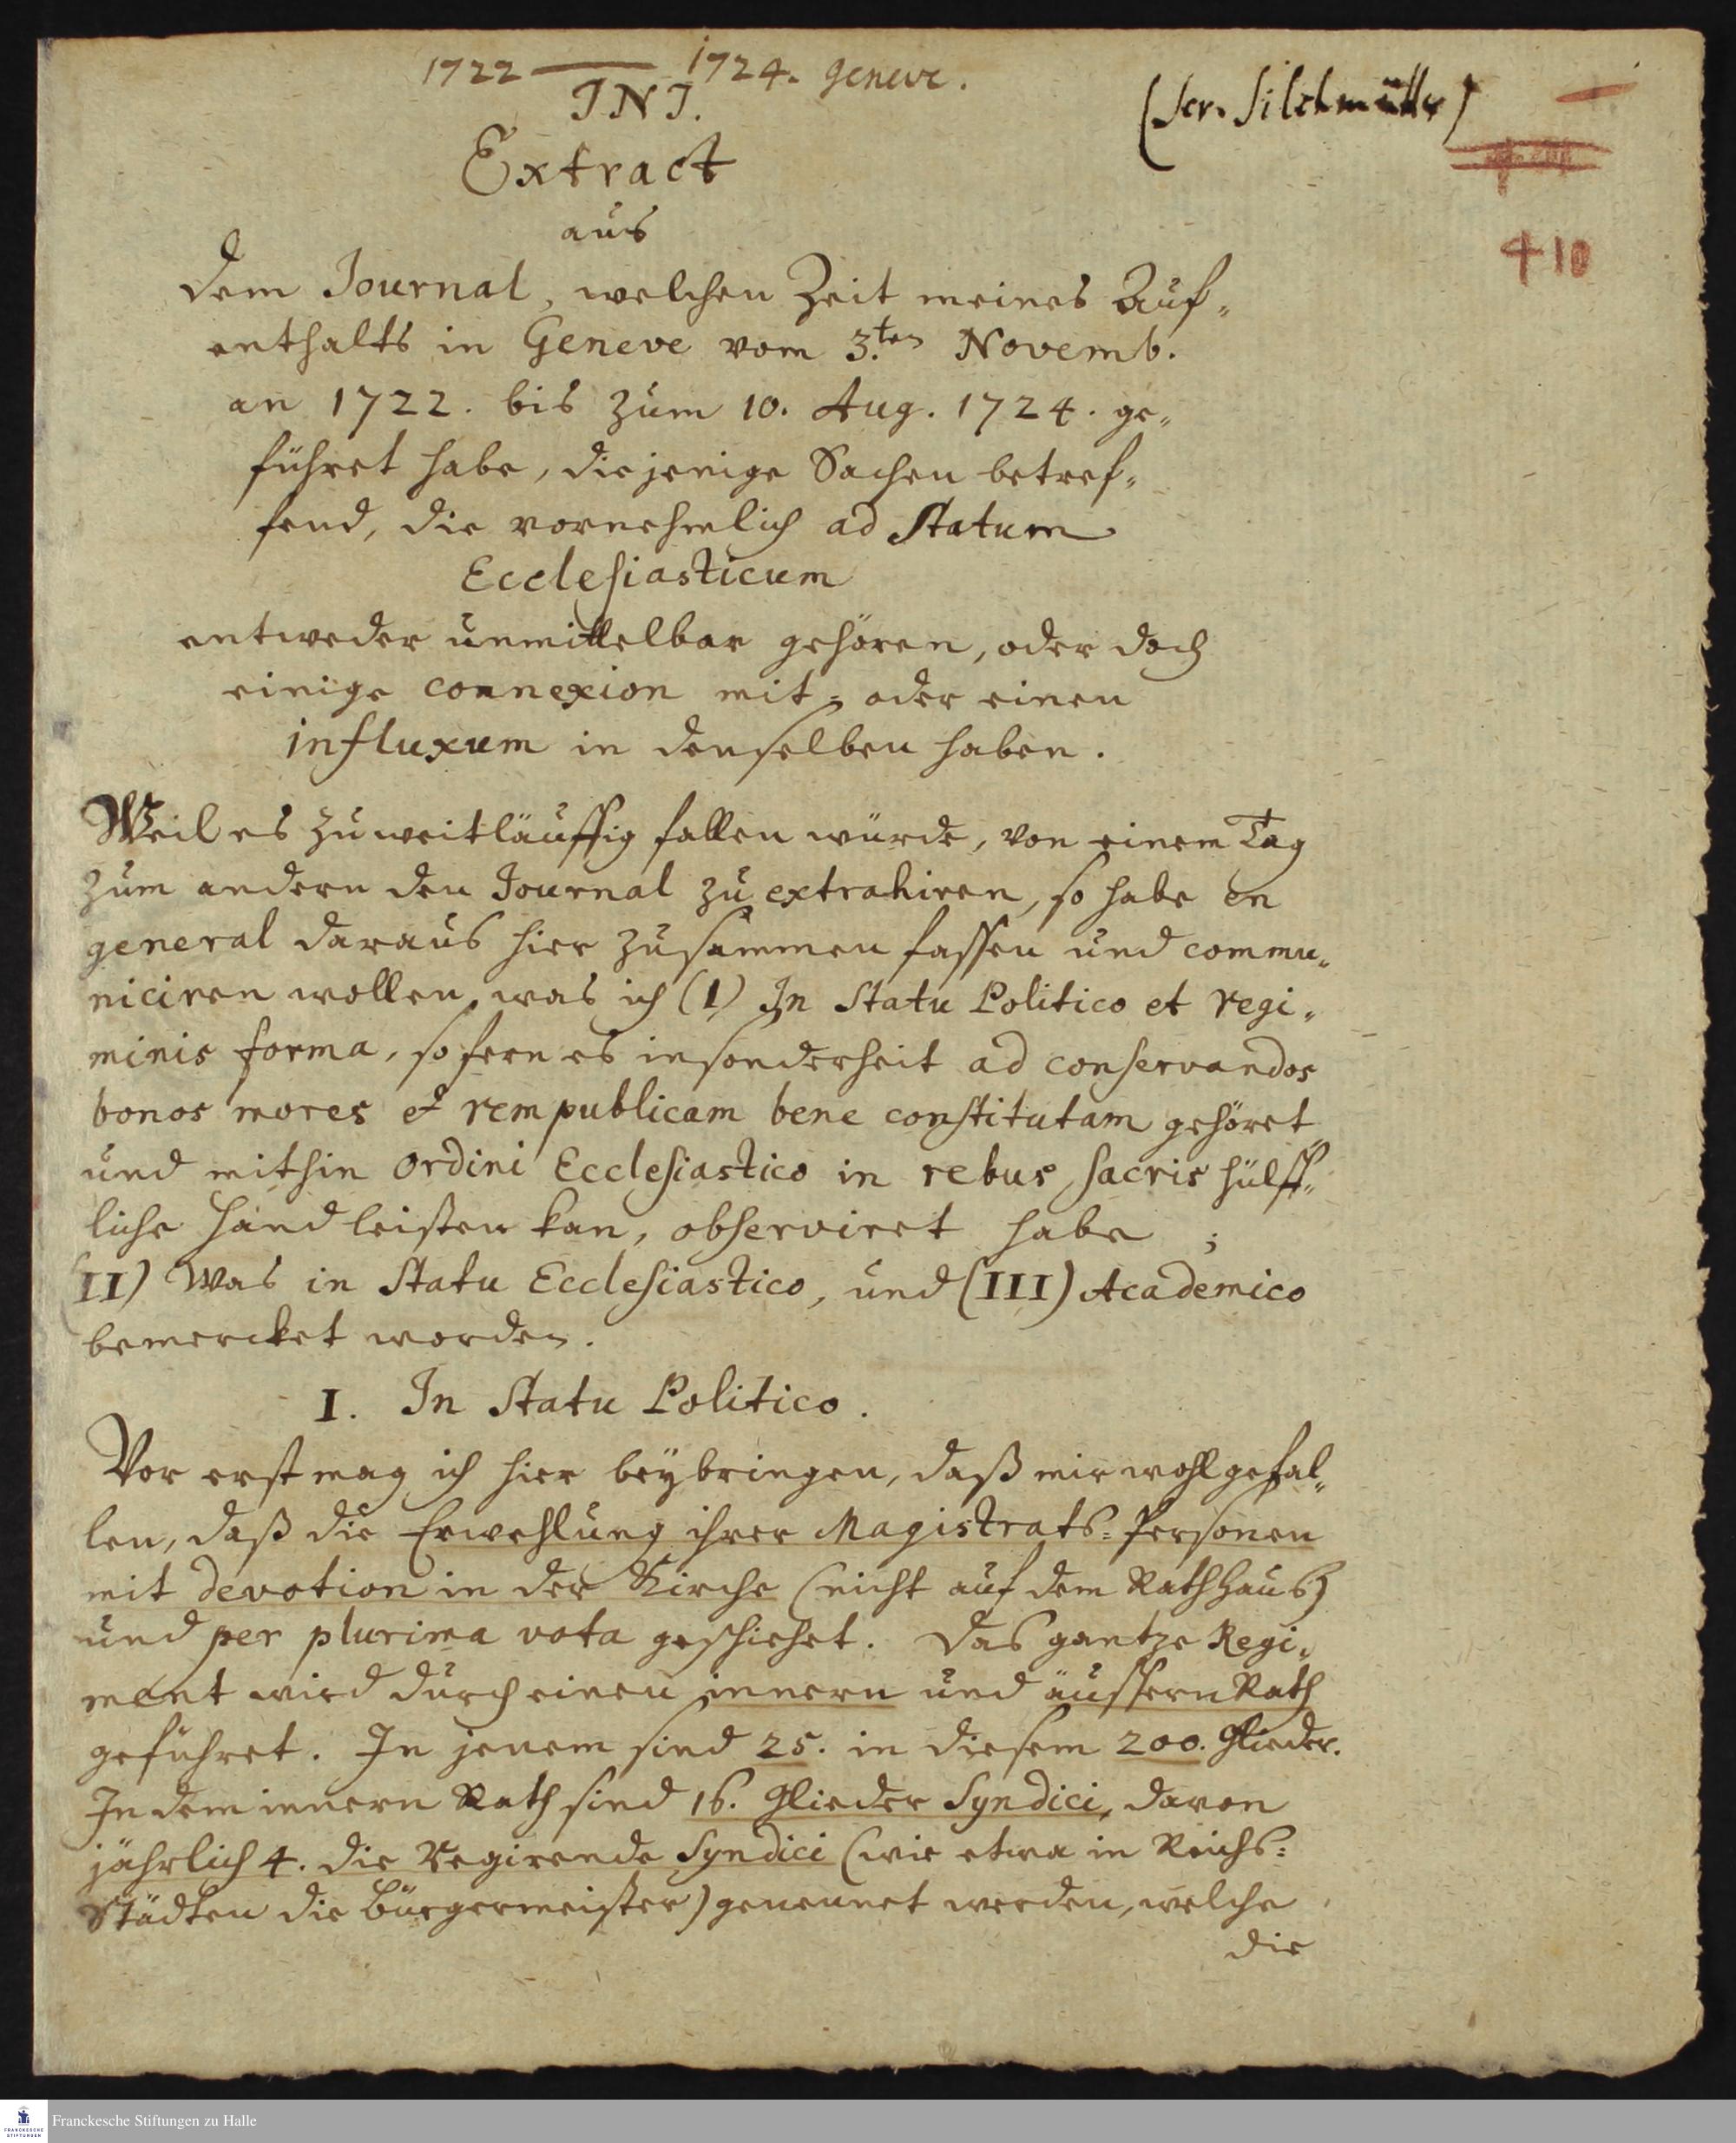 1722 — 1724. Geneve.
(Scr. Silchmüller)
J. N. J.
Extract
410
aus
dem Journal, welchen Zeit meines Auf-
enthalts in Geneve vom 3.ten Novemb.
an 1722. bis zum 10. Aug. 1724. ge-
führet habe, diejenige Sachen betref-
fend, die vornehmlich ad Statum
Ecclesiasticum
entweder unmittelbar gehören, oder doch
einige connexion mit- oder einen
influxum in denselben haben.
Weil es zu weitläuffig fallen würde, von einem Tag
zum andern den Journal zu extrahiren, so habe en
general daraus hier zusammen fassen und commu-
niciren wollen, was ich (I) In Statu Politico et regi-
minis forma, so fern es insonderheit ad conservandos
bonos mores et rempublicam bene constitutam gehöret
und mithin Ordini Ecclesiastico in rebus sacris hülff-
liche Hand leisten kan, observiret habe;
(II) Was in Statu Ecclesiastico, und (III) Academico
bemercket worden.
I. In Statu Politico.
Vor erst mag ich hier beybringen, daß mir wohl gefal-
len, daß die Erwehlung ihrer Magistrats-Personen
mit devotion in der Kirche (nicht auf dem Rathhauß)
und per plurima vota geschiehet. Das gantze Regi-
ment wird durch einen innern und äussern Rath
geführet. In jenem sind 25. in diesem 200. Glieder.
In dem innern Rath sind 16. Glieder Syndici, davon
jährlich 4. die Regirende Syndici (wie etwa in Reichs-
Städten die Bürgermeister) genennet werden, welche
die
Franckesche Stiftungen zu Halle
FRANCKESCHE
STIFTUNGEN